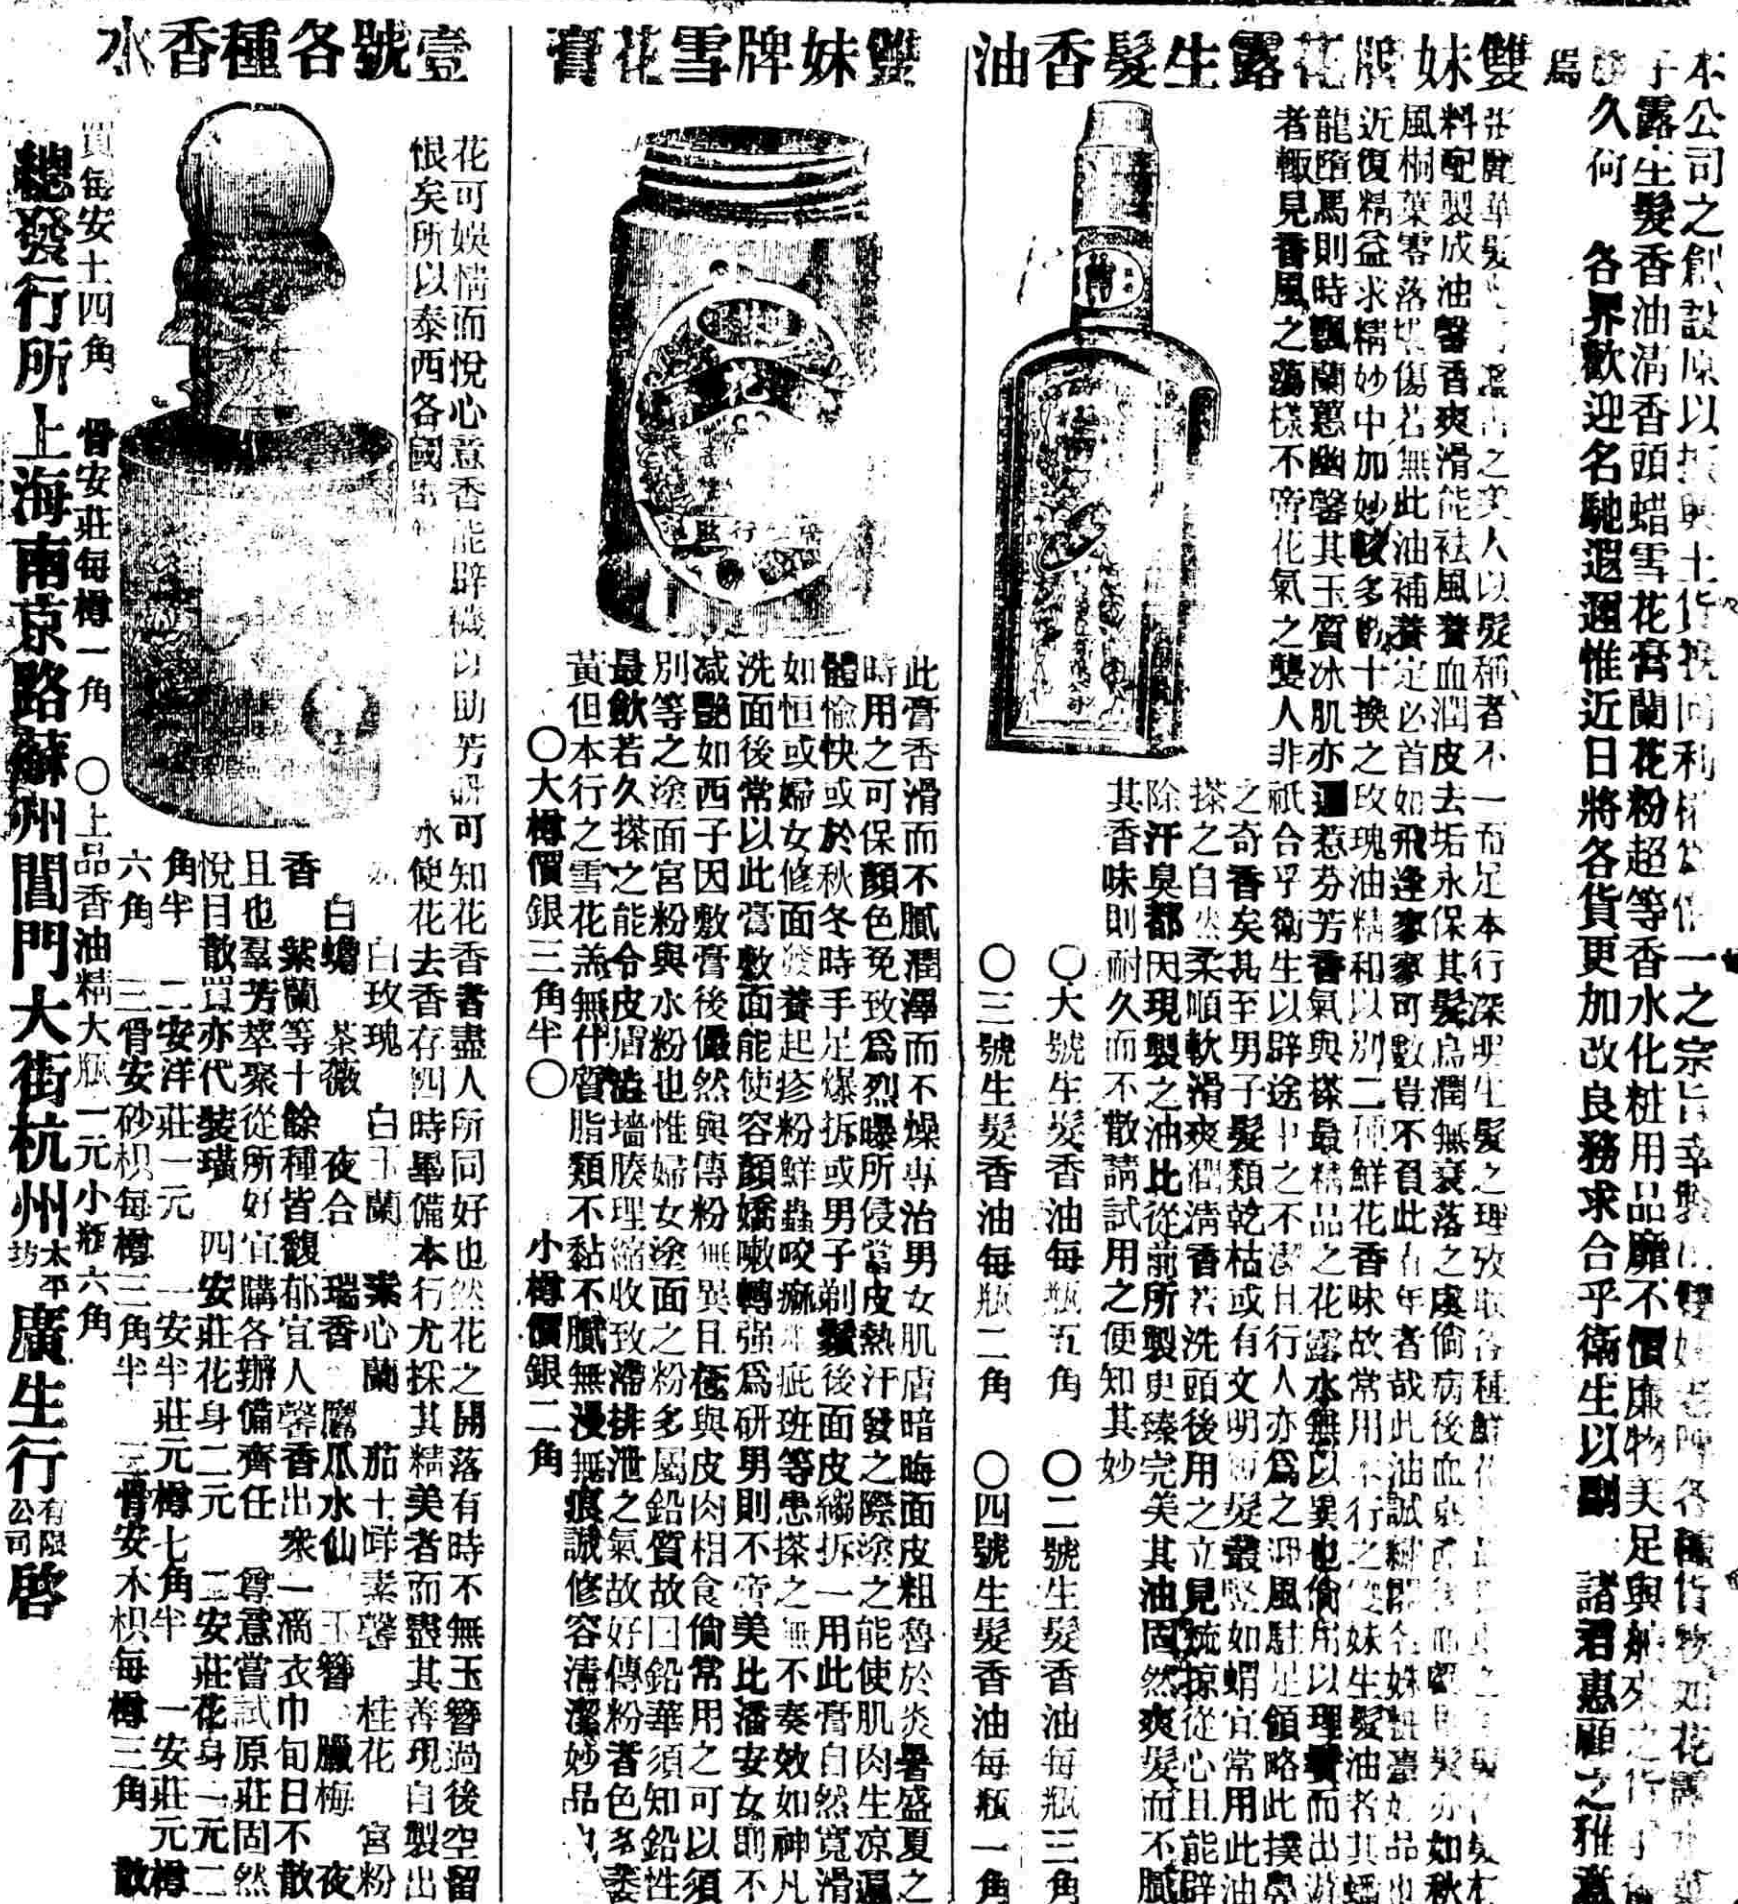 本公司之創設原以振興土貨挽回利權為一之宗旨幸舞雙妹老牌各種貨物如花露水花
露生髮香油清香頭蜡雪花膏蘭花粉超等香水化粧用品靡不價廉物美足與舶來之貨
久何 各界歡迎名馳遐邇惟近日將各貨更加改良務求合乎衛生以副 諸君惠顧之雅意
雙妹牌花露生髮香油
之美人以髮稱者不一而足本行深明生髮之理攷取各種鮮花
料配製成油馨香爽滑能祛風養血潤皮去垢永保其髮烏潤無衰落之虞倘病後血
風桐葉零落堪傷若無此油補養定必首如飛蓬寥寥可數豈不負此青年者哉此油誠
近復精益求精妙中加妙較多的十換之玫瑰油精和以別二種鮮花香味故常用本行之雙妹生髮油者其
龍墮馬則時飄蘭蕙幽馨其玉質冰肌亦還惹芬芳香氣與搽最精品之花露水無以異也倘用以理鬢而出游
者輙見香風之蕩樣不啻花氣之襲人非祇合乎衛生以辟途中之不潔且行人亦為之迎風駐足領略此撲鼻
之奇香矣甚至男子髮類乾枯或有文明頭髮叢竪如蝟宜常用此油
搽之自然柔順軟滑爽潤清香若洗頭後用之立見梳掠從心且能辟
除汗臭都因現製之油比從前所製更臻完美其油固然爽髮而不膩
其香味則耐久而不散請試用之便知其妙
〇大號生髮香油每瓶五角 〇二號生髮香油每瓶三角
〇三號生髮香油每瓶二角 〇四號生髮香油每瓶一角
雙妹牌雪花膏
此膏香滑而不膩潤澤而不燥專治男女肌膚暗晦面皮粗魯於炎暑盛夏之
時用之可保顏色免致為烈曝所侵當皮熱汗發之際塗之能使肌肉生凉遍
體愉快或於秋冬時手足爆拆或男子剃鬚後面皮縐拆一用此膏自然寬滑
如恒或婦女修面發養起疹粉鮮蟲咬癩疵班等患搽之無不奏效如神凡
洗面後常以此膏敷面能使容顏嬌嫩轉强為研男則不啻美比潘安女則不
减艷如西子因敷膏後儼然與傳粉無異且在與皮肉相食倘常用之可以須
別等之塗面宮粉與水粉也惟婦女塗面之粉多屬鉛質故曰鉛華須知鉛性
最飲若久搽之能令皮層墻腠理縮收致滯排泄之氣故好傳粉者色多萎
黃但本行之雪花羔無什質脂類不黏不膩無漫無痕誠修容清潔妙品也
〇大樽價銀三角半〇 小樽價銀二角
壹號各種香水
花可娛情而悅心意香能辟穢以助芳研可知花香者盡人所同好也然花之開落有時不無玉簪過後空留
恨矣所以泰西各國 水使花去香存四時畢備本行尤採其精美者而盡其善現自製出
白玫瑰 白玉蘭 素心蘭 茄士咩素馨 桂花 宮粉
白蟾 茶薇 夜合 瑞香 鷹爪水仙 玉簪 臘梅 夜
香 紫蘭等十餘種皆馥郁宜人馨香出衆一滴衣巾旬日不散
且也羣芳萃聚從所好宜購各辦備齊任 尊意當試原莊固然
悅目散買亦代裝璜 四安莊花身二元 二安莊花身一元二
角半 二安洋莊一元 一安半莊元樽七角半 一安莊元樽
六角 三骨安砂枳每樽三角半 三骨安木枳每樽三角 散
買每安士四角 骨安莊每樽一角 〇上品香油精大瓶一元小瓶六角
總發行所上海南京路蘇州閶門大街杭州太平坊廣生行有限公司啓